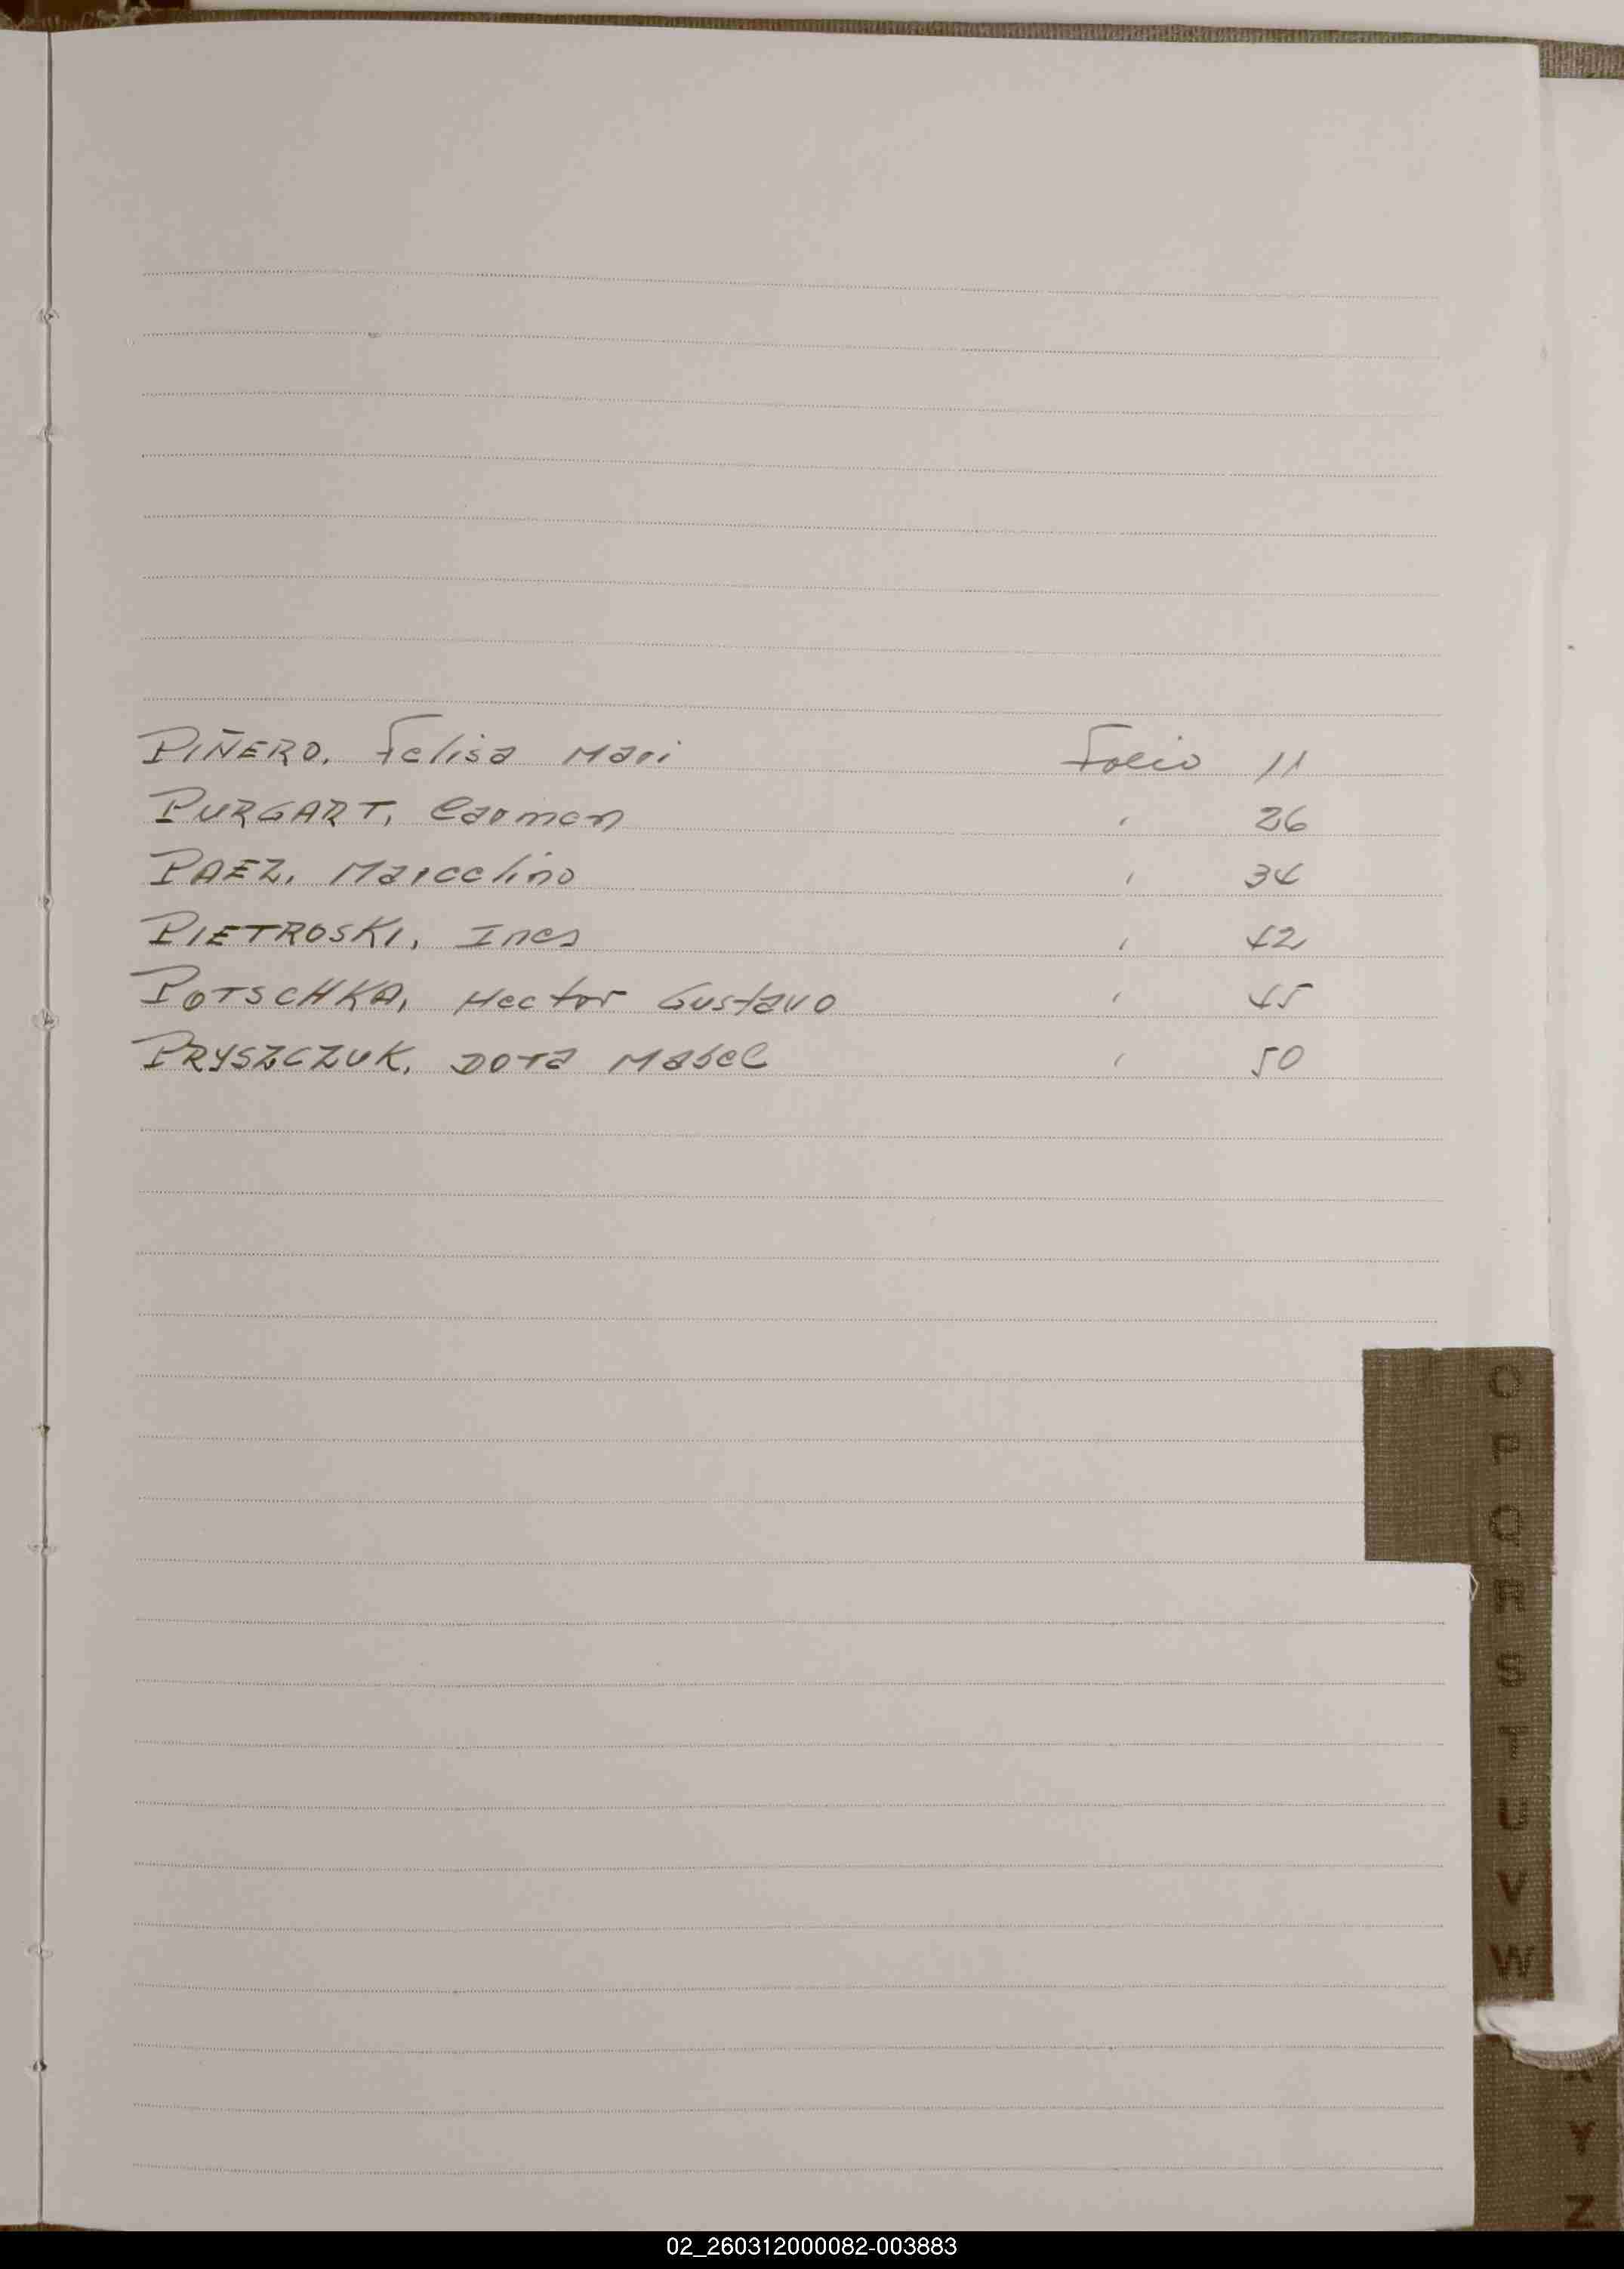 PIÑERO, Felisa Mari Folio 11
PURGART, Carmen " 26
PAEZ, Marcelino " 34
PIETROSKI, Ines " 42
POTSCHKA, Hector Gustavo " 45
PRYSZCZUK, Dora Mabel " 50
O
P
Q
R
S
T
U
V
W
X
Y
Z
02_260312000082-003883